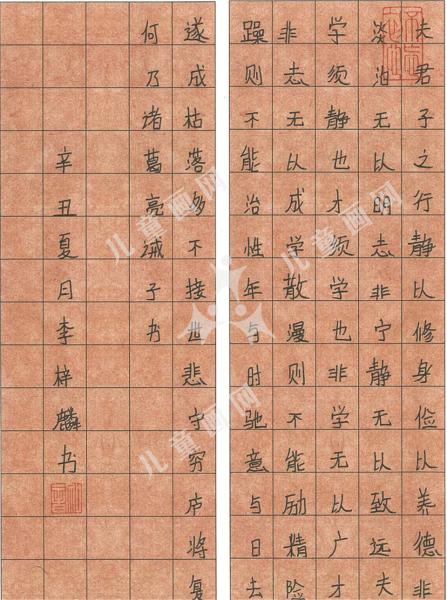 夫君子之行静以修身俭以养德非
淡泊无以明志非宁静无以致远夫
学须静也才须学也非学无以广才
非志无以成学散漫则不能励精险
躁则不能治性年与时驰意与日去
遂成枯落多不接世悲守穷庐将复
何乃诸葛亮诫子书
辛丑夏月李梓麟书
儿童画网
儿童画网
儿童画网